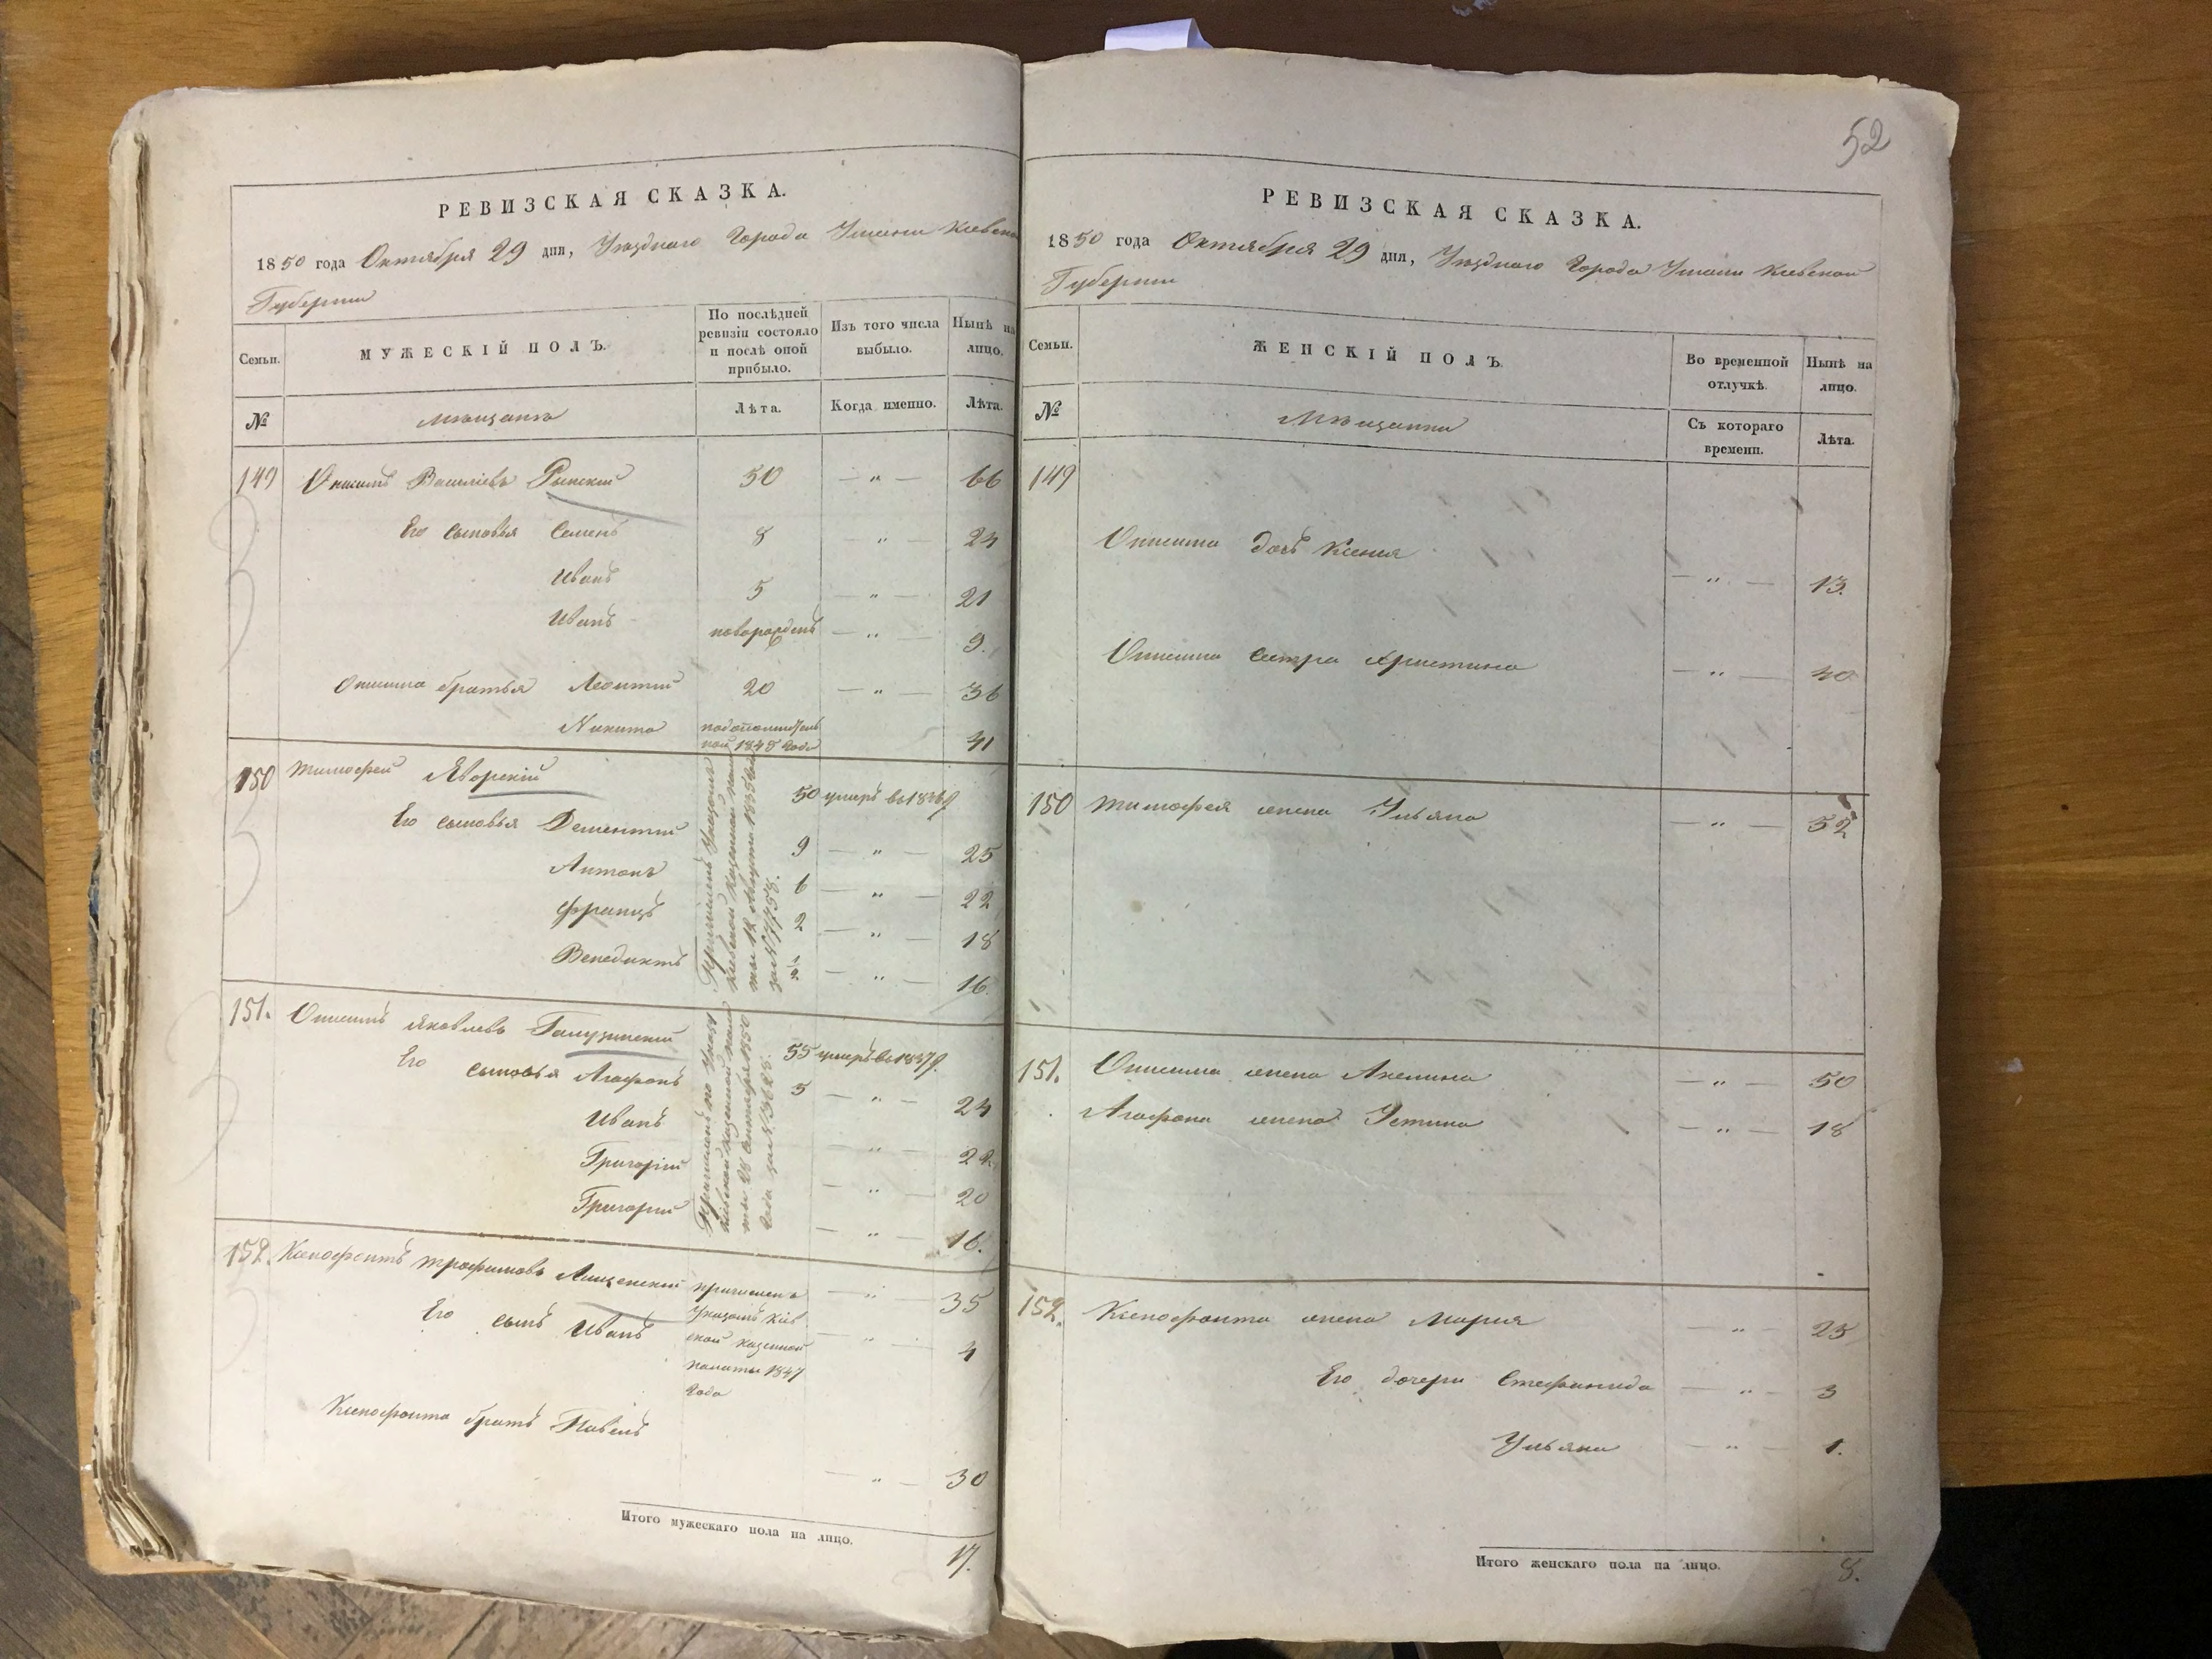 52
РЕВИЗСКАЯ СКАЗКА.
1850 года Октября 29 дня, Уѣзднаго Города Умани Кіевской
Губерніи
Семьи.
МУЖЕСКІЙ ПОЛЪ.
По послѣдней ревизіи состояло и послѣ оной прибыло.
Изъ того числа выбыло.
Нынѣ на лицо.
№
мѣщанъ
Лѣта.
Когда именно.
Лѣта.
149 Онисимъ Васильевъ 50 — „ — 66
Его сыновья Семенъ 8 — „ — 24
Иванъ 5 — „ — 21
Иванъ новорожденъ — „ — 9.
Онисима братья Леонтій 20 — „ — 36
Никита 41
150 Тимофей Яворскій 50 умеръ въ
Его сыновья Дементій 9 — „ — 25
Антонъ 6 — „ — 22
Францъ 2 — „ — 18
Венедиктъ ½ — „ — 16.
Кіевской казенной
за № 7758.
151. Онисимъ Яковлевъ 55 умеръ въ 1837 г.
Его сыновья Агафонъ 5 — „ — 24
Иванъ — „ — 22.
Григорій — „ — 20
Григорій — „ — 16.
Причисленъ по Указу
Кіевской казенной пала
ты 28 Сентября 1850
года за №
152. Ксенофонтъ Трофимовъ причислены — „ — 35
Его сынъ Иванъ Указомъ Кіев — „ — 4
ской казенной
палаты 1847
года
Ксенофонта братъ Павелъ — „ — 30
Итого мужескаго пола на лицо. 17.
РЕВИЗСКАЯ СКАЗКА.
1850 года Октября 29 дня, Уѣзднаго Города Умани Кіевской
Губерніи
Семьи.
ЖЕНСКІЙ ПОЛЪ.
Во временной отлучкѣ.
Нынѣ на лицо.
№
Мѣщанки
Съ котораго времени.
Лѣта.
149
Онисима дочь Ксенія — „ — 13.
Онисима сестра Христина — „ — 40
150 Тимофея жена Ульяна — „ — 52
151. Онисима жена Акелина — „ — 50
Агафона жена Устина — „ — 18
152. Ксенофонта жена Марія — „ — 25
Его дочери Стефанида — „ — 3
Ульяна — „ — 1.
Итого женскаго пола на лицо. 8.